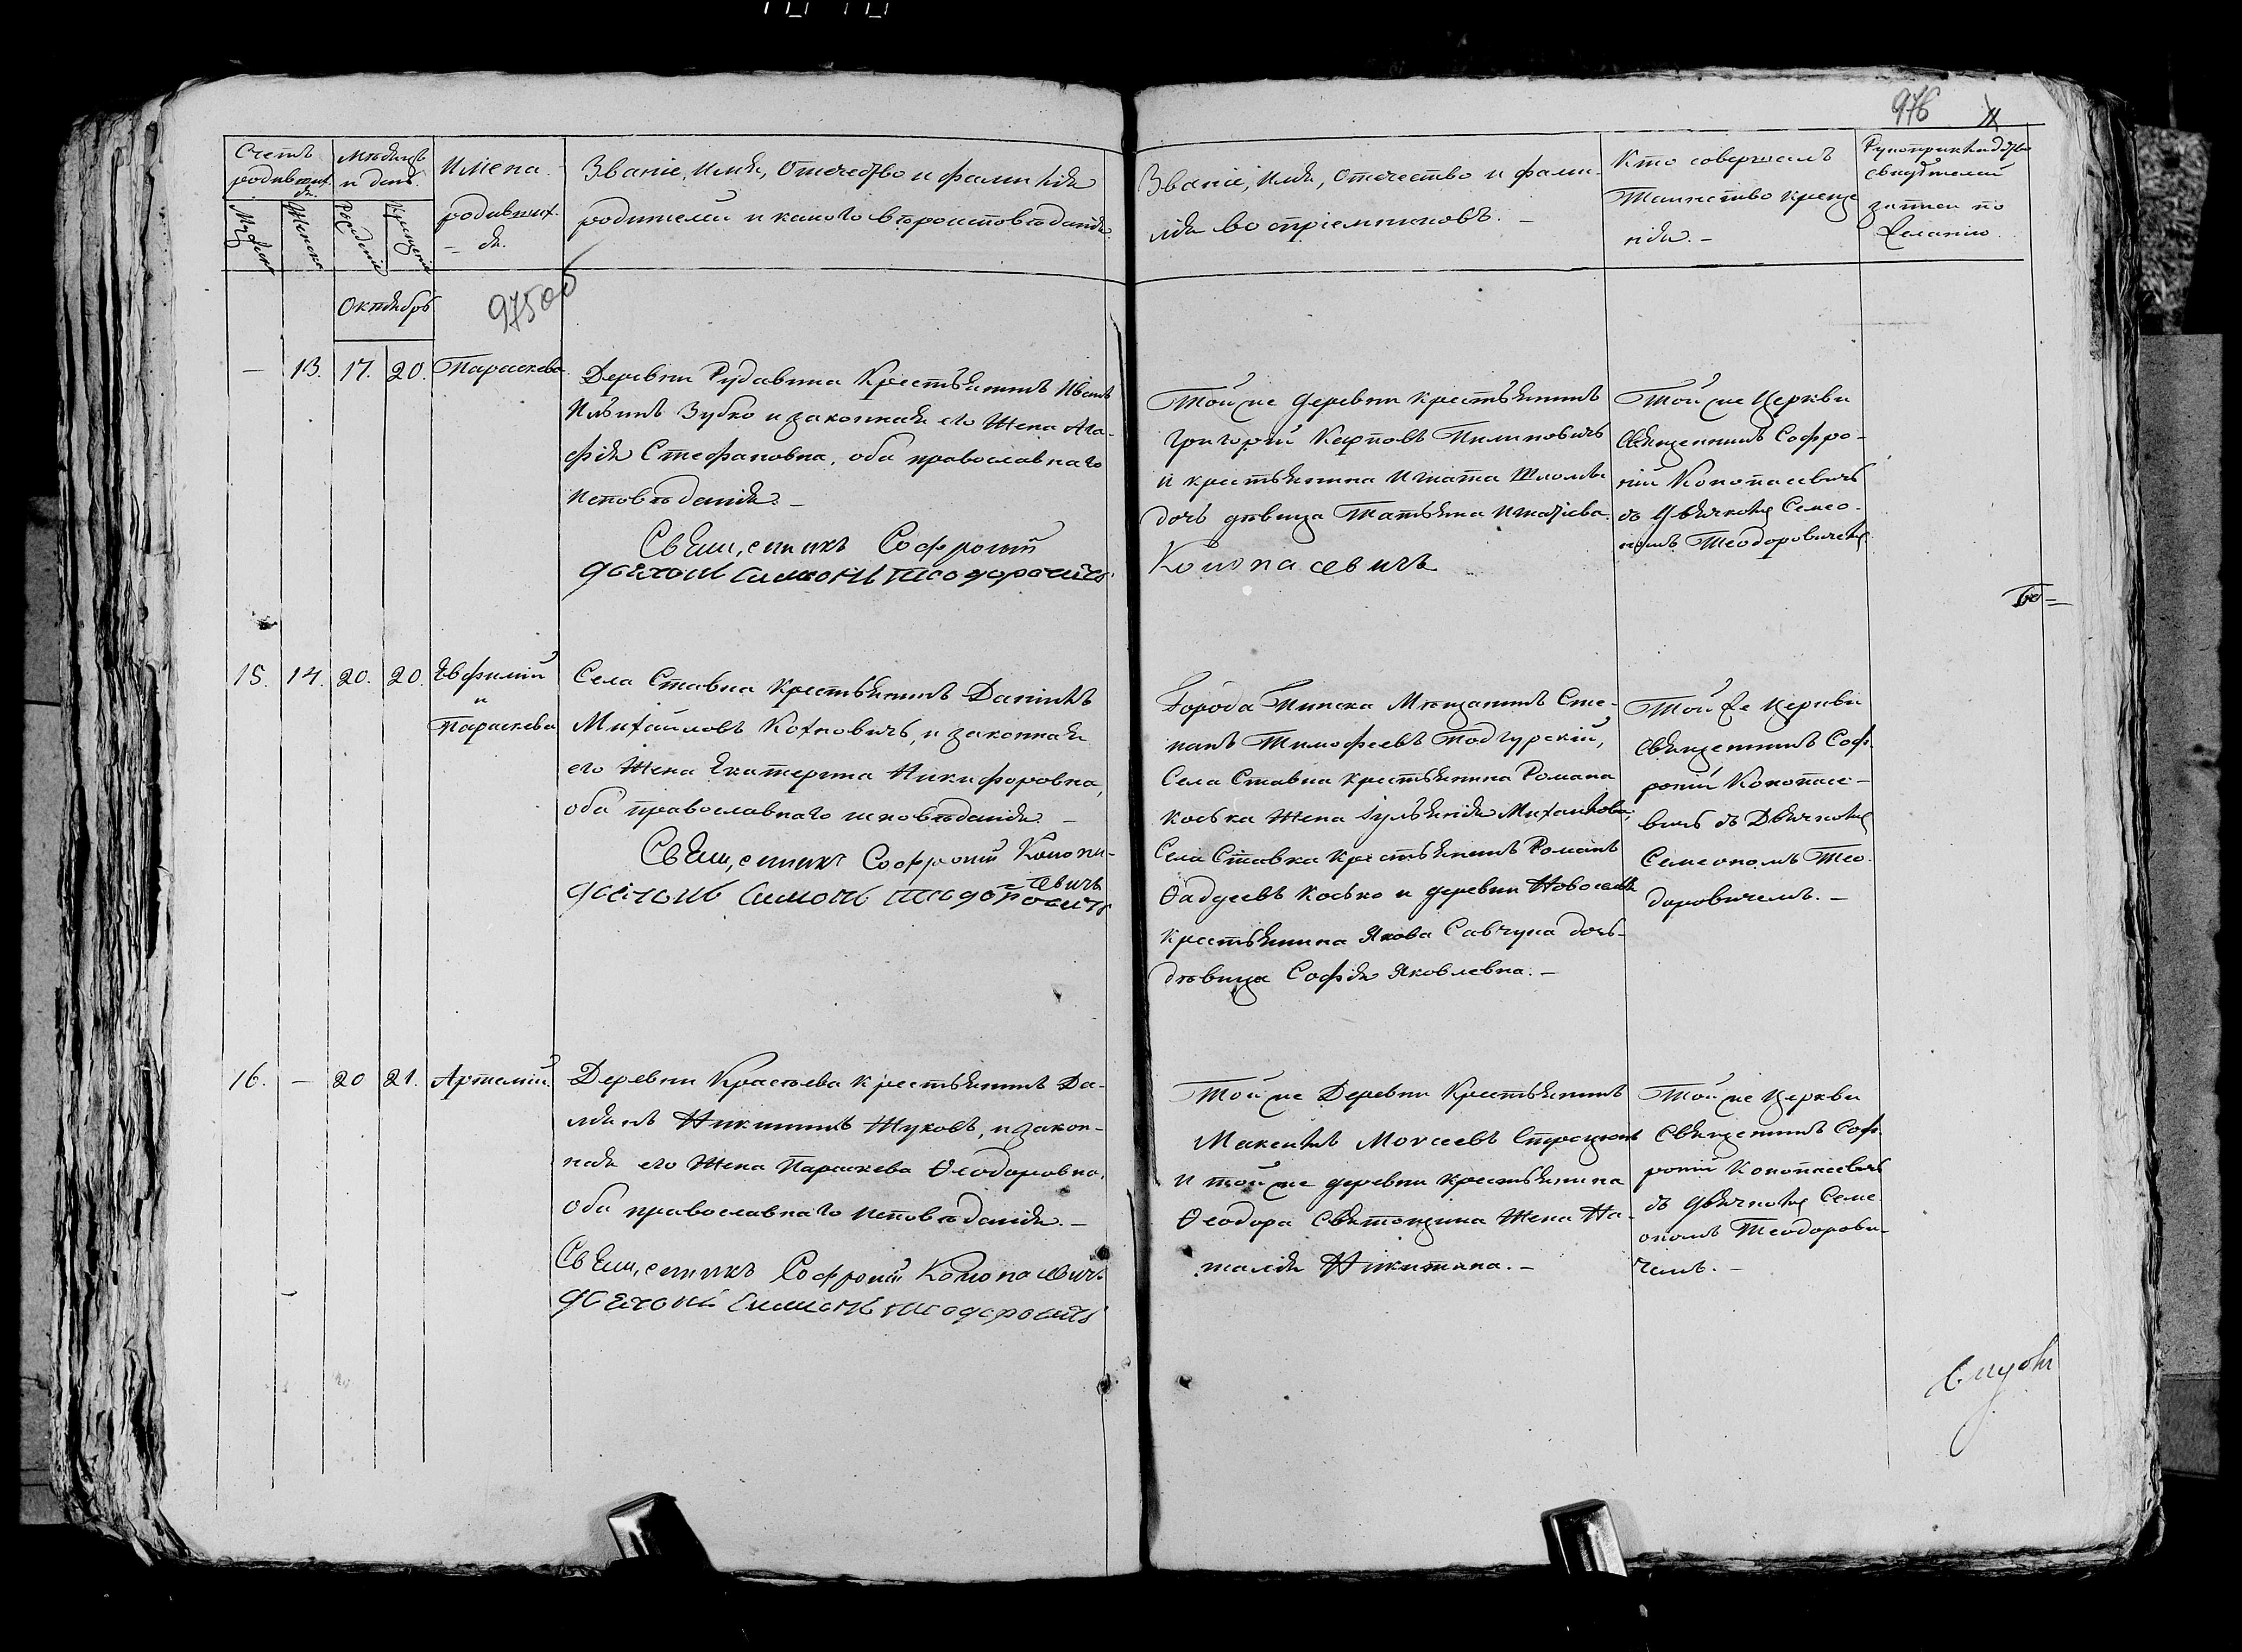 976
Счетъ родившихся
Мѣсяцъ и день
Имена родившихся.
Званіе, Имя, Отечество и фамилія
родителей и какого вѣроисповѣданія
Званіе, Имя, Отечество и фами-
лія воспріемниковъ. –
Кто совершалъ
Таинство креще
нія. –
Рукоприкладство
свидѣтелей
записи по
желанію
Мужеска
Женска
Рожденіе
Крещеніе
Октябрь
975об
– 13. 17. 20. Параскева.
Деревни Рудавина Крестьянинъ Иванъ
Ильинъ Зубко и законная его Жена Ага-
фія Стефановна, оба православнаго
исповѣданія. –
Священникъ Софроній
дьячокъ Симонъ Теодоровичъ
Той же деревни крестьянинъ
Григорій Карповъ Пилиповичъ
и крестьянина Игната
дочь дѣвица Татьяна Игнатіева.
Конопасевичъ
Той же Церкви
Священникъ Софро-
ній Конопасевичъ
съ Дьячкомъ Семео-
номъ Теодоровичемъ
15. 14. 20. 20. Евфимій
и
Параскева
Села Ставка Крестьянинъ Даніилъ
Михайловъ Кохновичъ, и законная
его Жена Екатерина Никифоровна,
оба православнаго исповѣданія. –
Священникъ Софроній Конопа-
севичъ
дьячокъ Симонъ Теодоровичъ
Города Пинска Мѣщанинъ Сте-
панъ Тимофеевъ Подгурскій,
Села Ставка крестьянина Романа
Коська Жена Іульянія Михайлова,
Села Ставка крестьянинъ Романъ
Фадѣевъ Косько и деревни Новоселъ
крестьянина Якова Савчука дочь
дѣвица Софія Яковлевна. –
Той же Церкви
Священникъ Соф-
роній Конопасе-
вичъ съ Дьячкомъ
Семеономъ Тео-
доровичемъ. –
16. – 20 21. Артемій.
Деревни Красіева крестьянинъ Да-
міянъ Никитинъ Жуковъ, и закон-
ная его Жена Параскева Ѳеодоровна,
оба православнаго исповѣданія. –
Священникъ Софроній Конопасевичъ
дьячокъ Симонъ Теодоровичъ
Той же Деревни Крестьянинъ
Максимъ Моисеевъ
и той же деревни крестьянина
Ѳеодора Жена На-
талія Никитина. –
Той же Церкви
Священникъ Соф-
роній Конопасевичъ
съ Дьячкомъ Семе
ономъ Теодорови-
чемъ. –